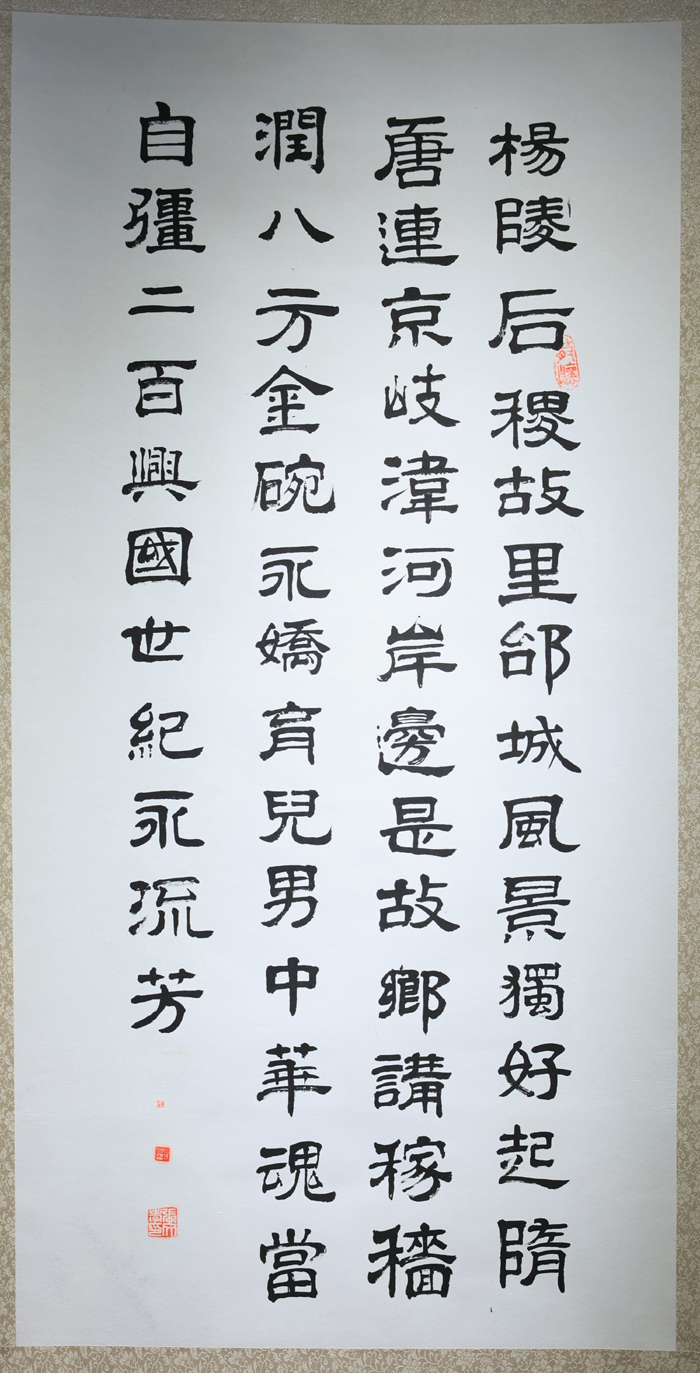 楊陵后稷故里邰城風景獨好起隋
唐連京岐湋河岸邊是故鄉講稼穡
潤八方金碗永嬌育兒男中華魂當
自彊二百興國世紀永流芳